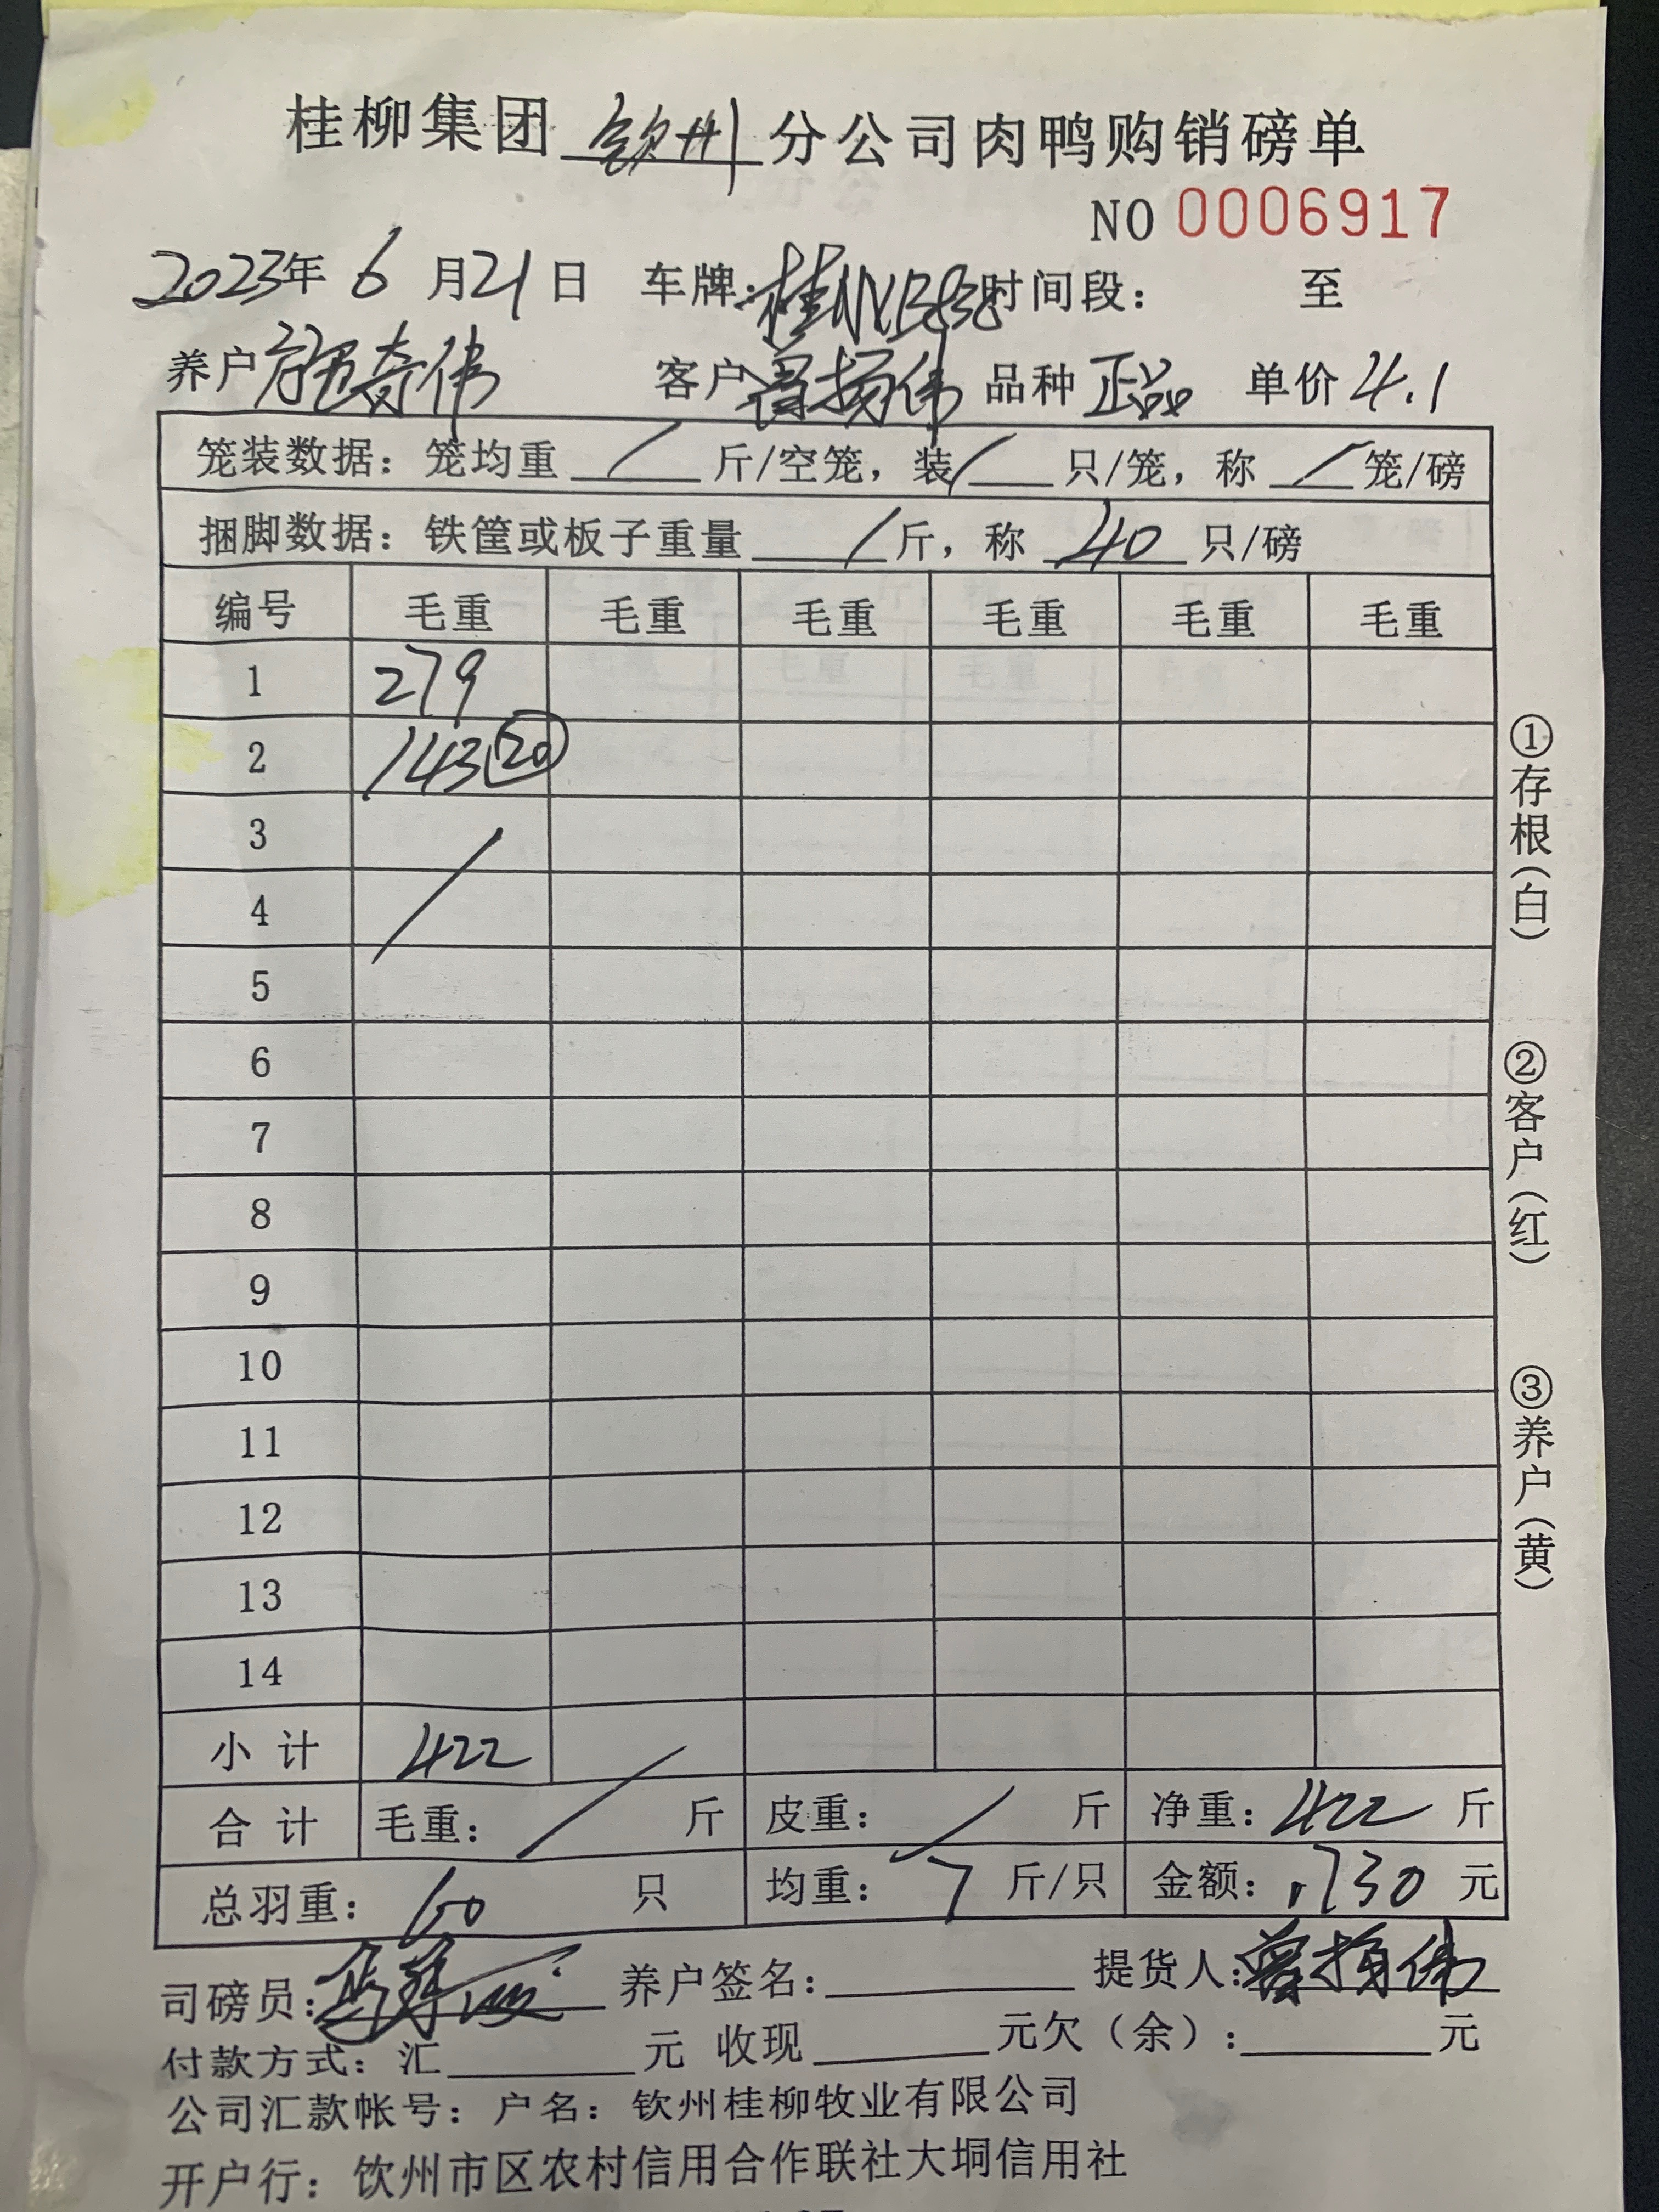 桂柳集团 钦州 分公司肉鸭购销磅单
NO 0006917
2023年 6 月 21 日 车牌: 桂N 时间段: 至
养户 施奇伟 客户 曾扬伟 品种 正品 单价 4.1
笼装数据: 笼均重 / 斤/空笼, 装 / 只/笼, 称 / 笼/磅
捆脚数据: 铁筐或板子重量 / 斤, 称 40 只/磅
编号 毛重 毛重 毛重 毛重 毛重 毛重
1 279
2 143 ⑳
3
4
5
6
7
8
9
10
11
12
13
14
小计 422
合计 毛重: / 斤 皮重: / 斤 净重: 422 斤
总羽重: 60 只 均重: 7 斤/只 金额: 1730 元
司磅员: 养户签名: 提货人: 曾扬伟
付款方式: 汇 元 收现 元欠(余): 元
公司汇款帐号: 户名: 钦州桂柳牧业有限公司
开户行: 钦州市区农村信用合作联社大垌信用社
①存根(白)
②客户(红)
③养户(黄)